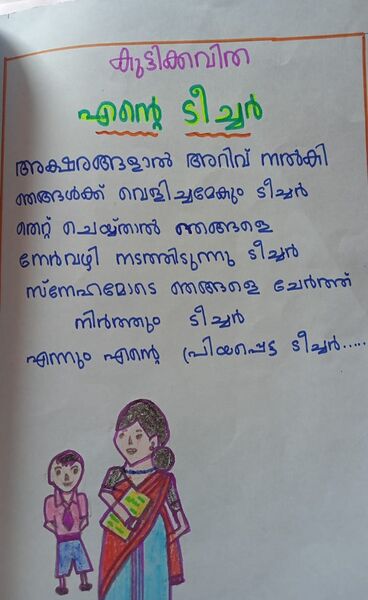 കുട്ടിക്കവിത
എന്റെ ടീച്ചർ
അക്ഷരങ്ങളാൽ അറിവ് നൽകി
ഞങ്ങൾക്ക് വെളിച്ചമേകും ടീച്ചർ
തെറ്റ് ചെയ്താൽ ഞങ്ങളെ
നേർവഴി നടത്തിടുന്നു ടീച്ചർ
സ്നേഹമോടെ ഞങ്ങളെ ചേർത്ത്
നിർത്തും ടീച്ചർ
എന്നും എന്റെ പ്രിയപ്പെട്ട ടീച്ചർ.....